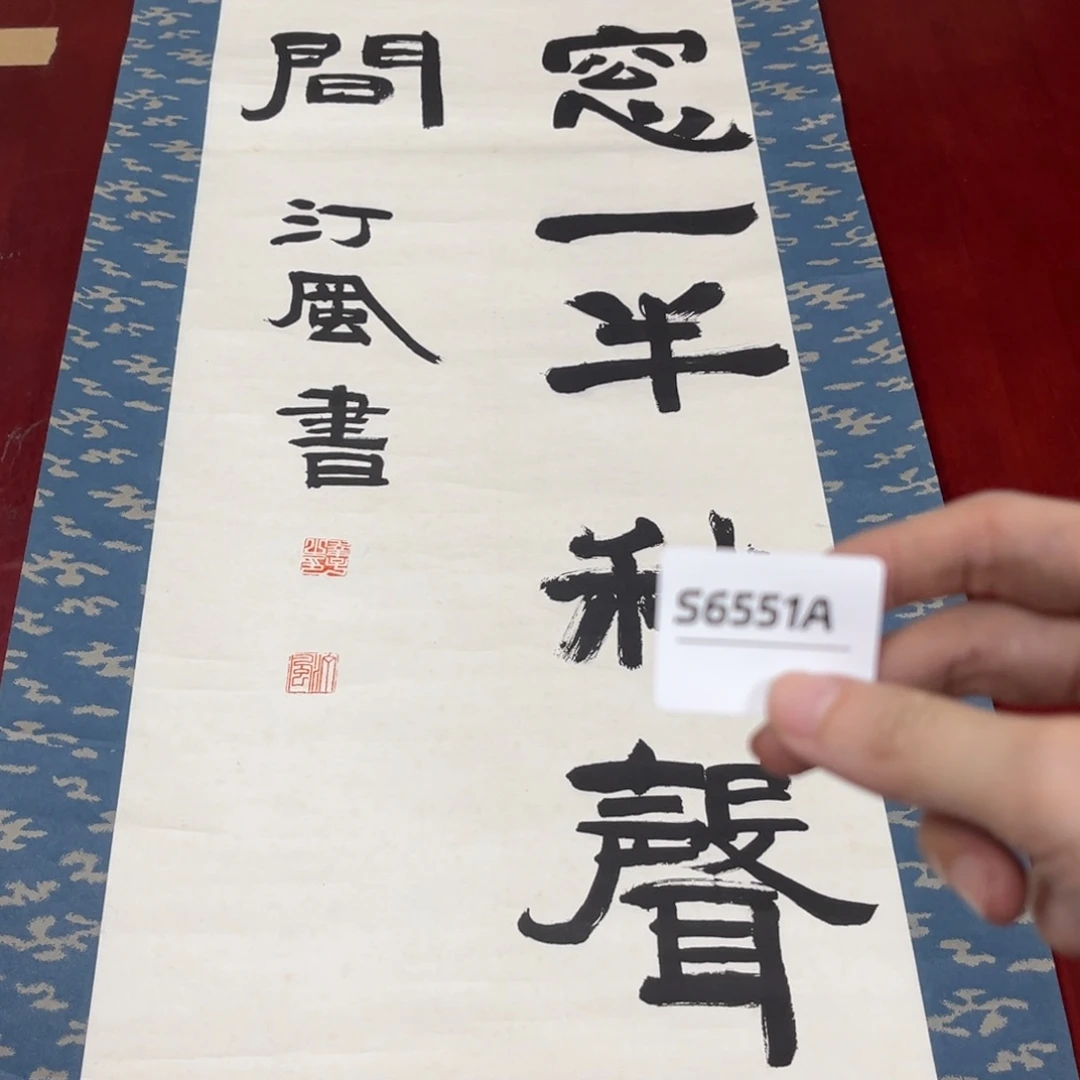 窓一半秋聲
間
汀風書
汀風
S6551A